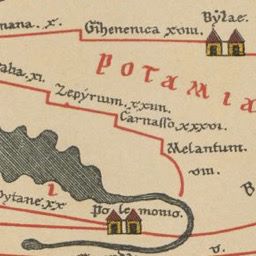 nana. x.
Gihenenica xviii.
Bylae.
POTAMIA
aba. xi.
Zepyrium. xxiiii.
Carnasso. xxxvi.
Melantum.
viii.
B
ytane. xx
I
Polemonio.
v.